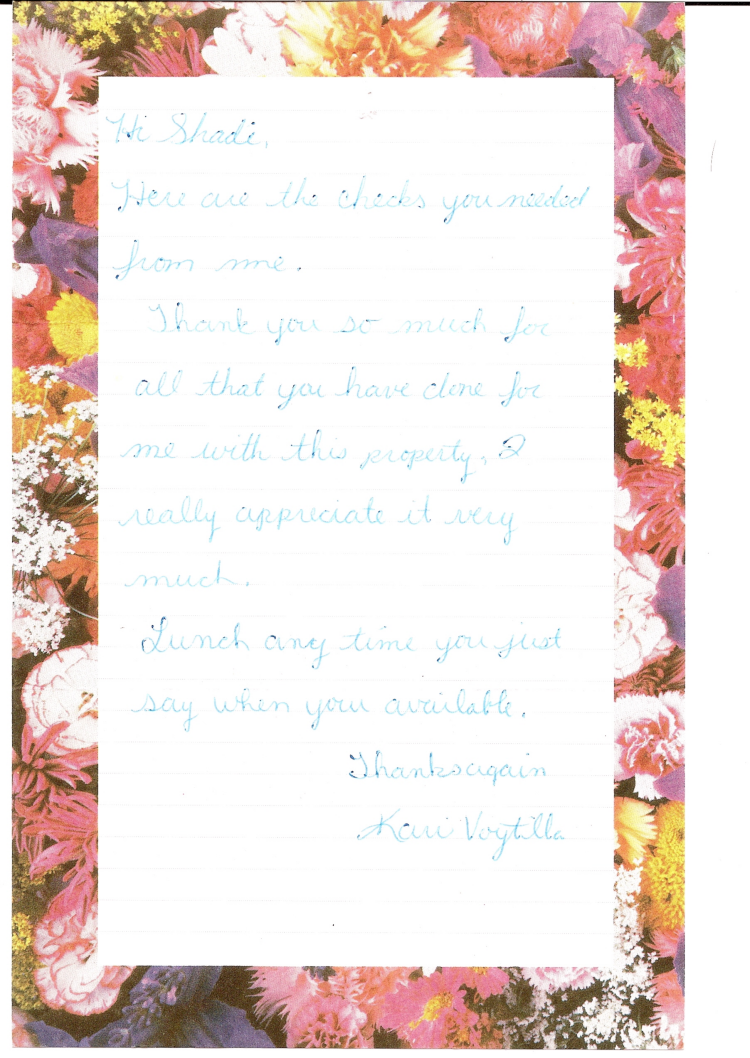 Hi Shadi,
Here are the checks you needed
from me.
Thank you so much for
all that you have done for
me with this property. I
really appreciate it very
much.
Lunch any time you just
say when your available.
Thanks again
Kari Voytilla